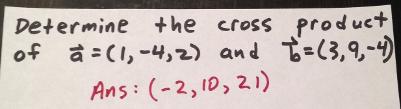 Determine the cross product
of a⃗ = (1, -4, 2) and b⃗ = (3, 9, -4)
Ans: (-2, 10, 21)